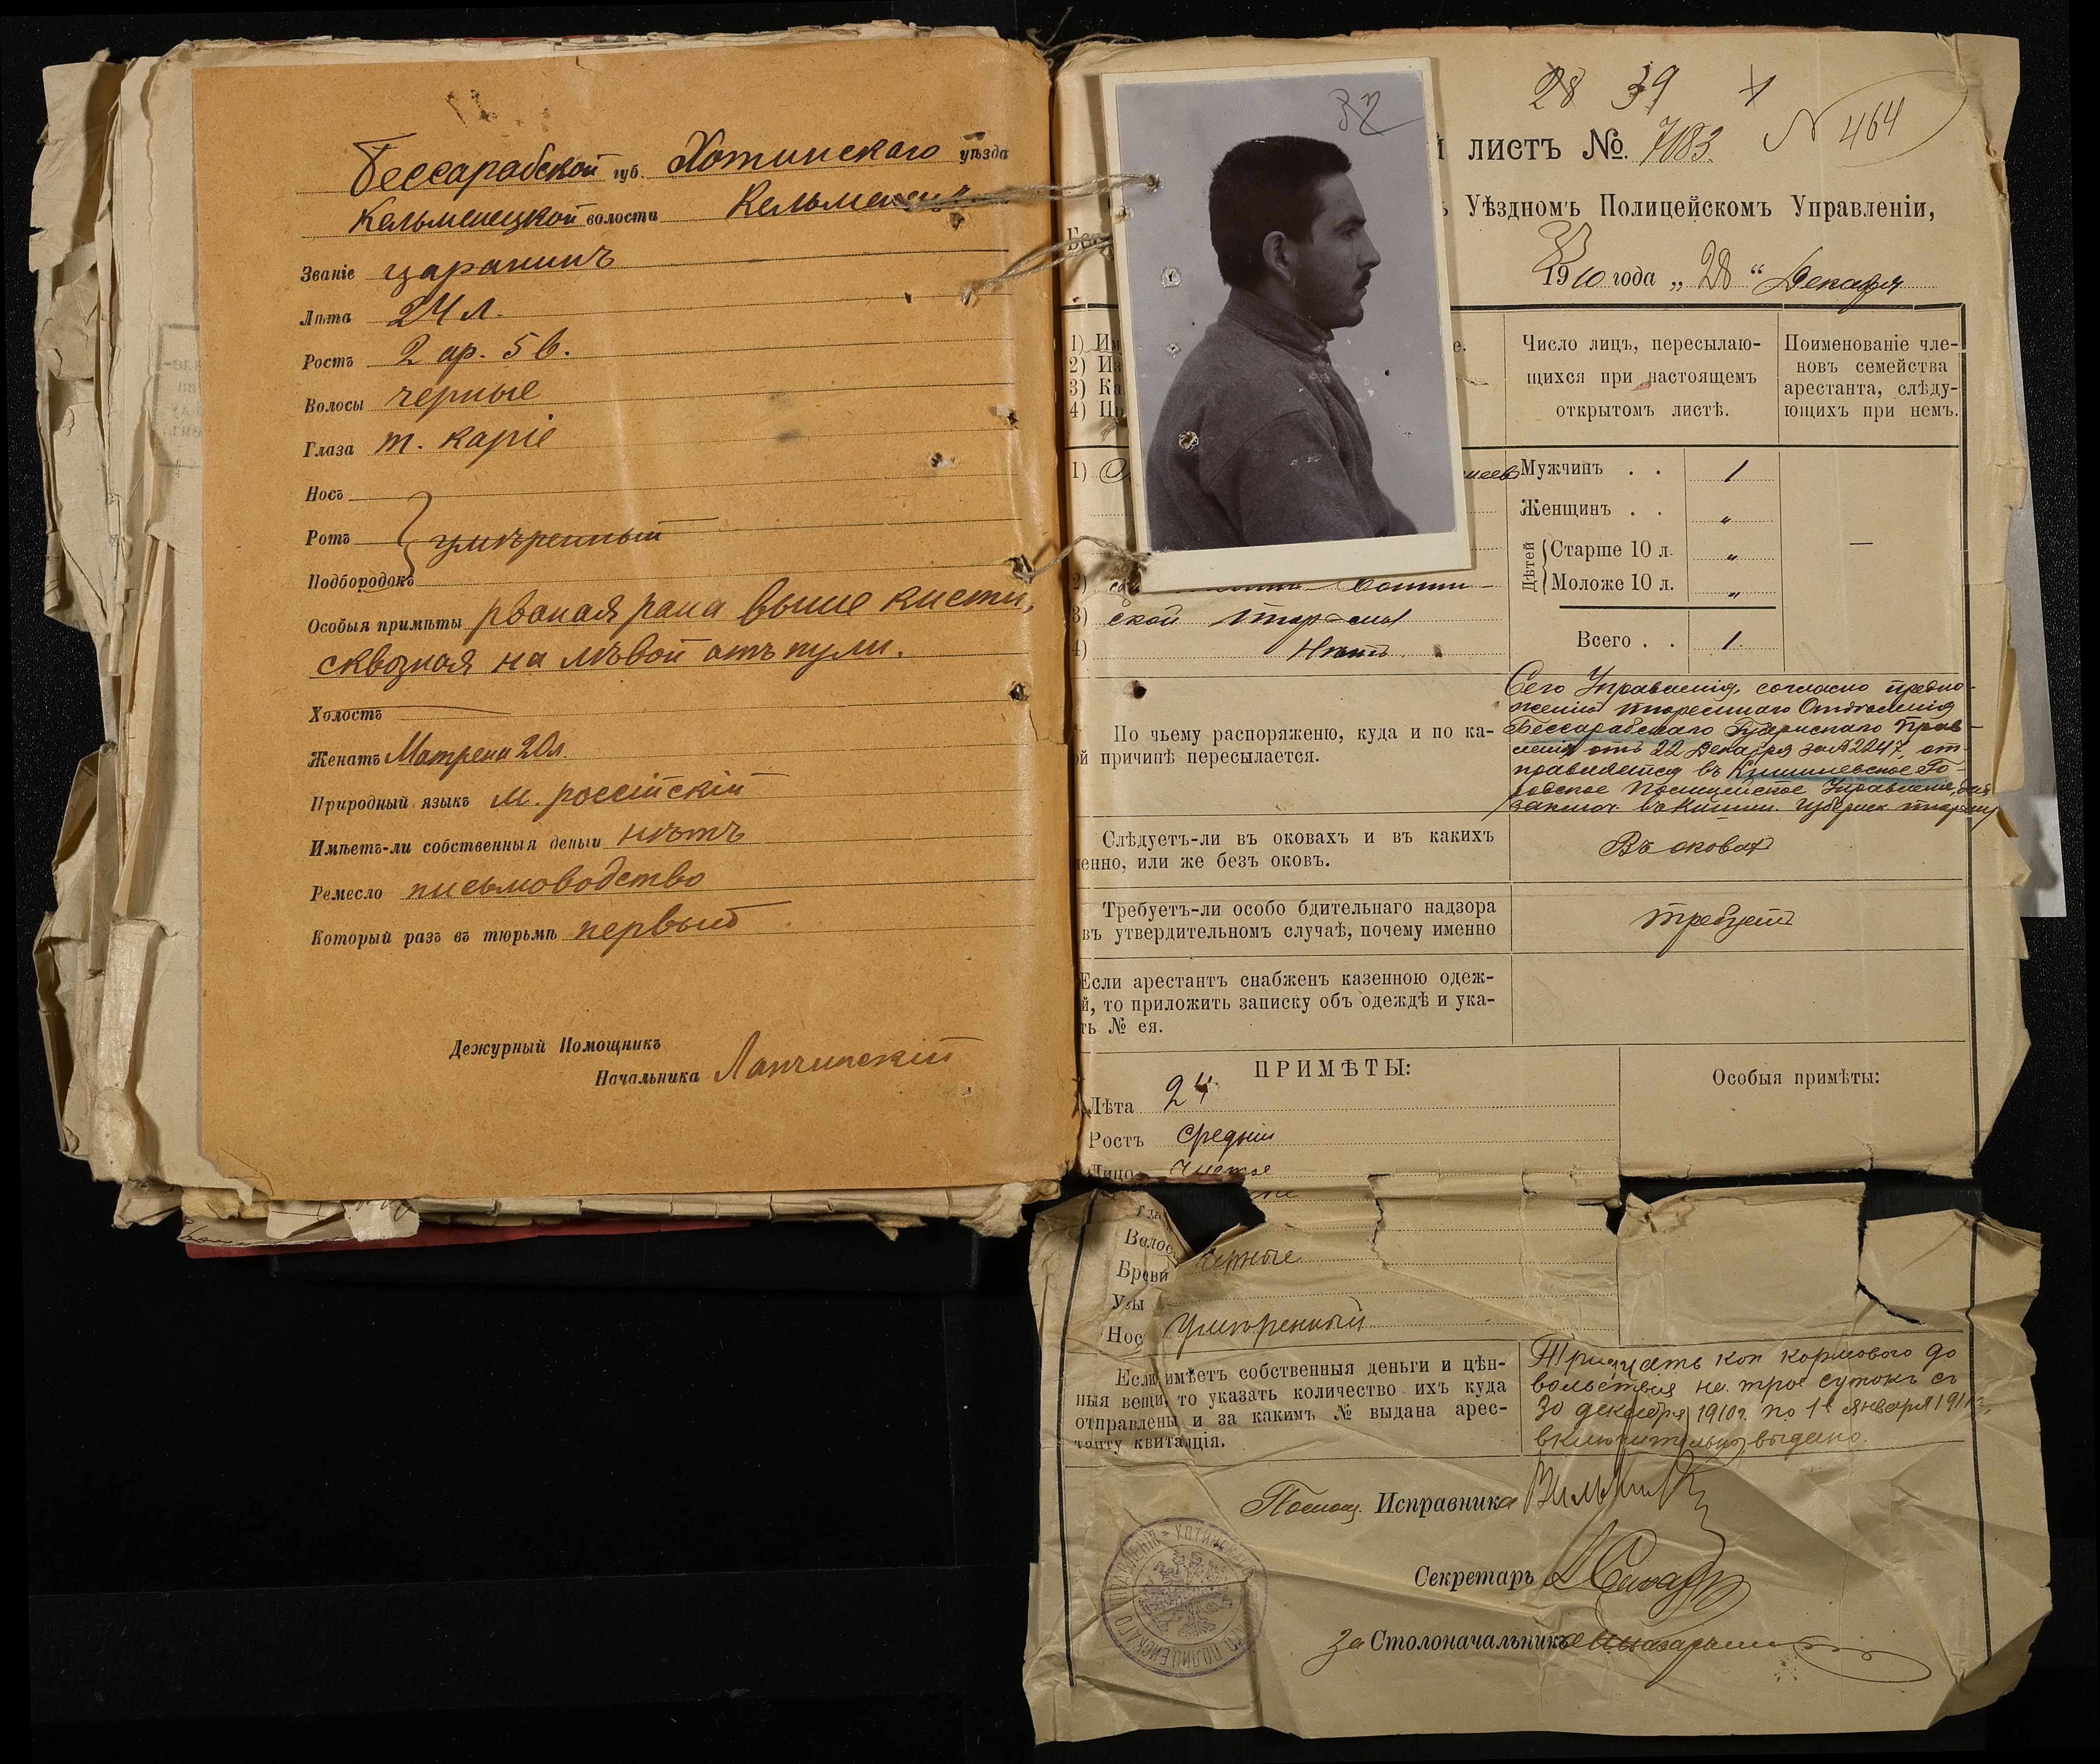 Бессарабской губ. Хотинскаго уѣзда
Кельменецкой волости
Званіе царанинъ
Лѣта 24 л.
Ростъ 2 ар. 5 в.
Волосы черные
Глаза т. каріе
Носъ
Ротъ умѣренный
Подбородокъ
Особыя примѣты рваная рана выше кисти,
сквозная на лѣвой отъ пули.
Холостъ
Женатъ Матрена 20 л.
Природный языкъ м. россійскій
Имѣетъ-ли собственныя деньги нѣтъ
Ремесло письмоводство
Который разъ въ тюрьмѣ первый
Дежурный Помощникъ
Начальника
28 39
й листъ №. 7183. N 464
ъ Уѣздномъ Полицейскомъ Управленіи,
1910 года „ 28 “ Декабря
32
1) Им
2) Из
3) Ка
4) Пр
Число лицъ, пересылаю-
щихся при настоящемъ
открытомъ листѣ.
Поименованіе чле-
новъ семейства
арестанта, слѣду-
ющихъ при немъ.
1)
Мужчинъ . . 1
Женщинъ . . „
Дѣтей
Старше 10 л. „
Моложе 10 л. „
Всего . . 1.
—
2)
3) ской тюрьмы
4) Нѣтъ.
По чьему распоряженю, куда и по ка-
ой причинѣ пересылается.
Сего Управленія, согласно предло-
женію тюремнаго Отдѣленія
Бессарабскаго Губернскаго Прав-
ленія отъ 22 Декабря за № 2247, от-
правляется въ Кишиневское Го-
родское Полицейское Управленіе, для
заключ. въ Кишин. губернск. тюрьму
Слѣдуетъ-ли въ оковахъ и въ какихъ
енно, или же безъ оковъ.
Въ оковах
Требуетъ-ли особо бдительнаго надзора
въ утвердительномъ случаѣ, почему именно
требуетъ
Если арестантъ снабженъ казенною одеж-
й, то приложить записку объ одеждѣ и ука-
ть № ея.
ПРИМѢТЫ:
Особыя примѣты:
Лѣта 24
Ростъ средній
Лицо чистое
Волос черные
Брови
Усы
Нос умѣренный
Если имѣетъ собственныя деньги и цѣн-
ныя вещи, то указать количество ихъ куда
отправлены и за какимъ № выдана арес-
танту квитанція.
Тридцать коп кормового до
вольствія на трое сутокъ съ
30 декабря 1910 г. по 1е января 1911 г.,
включительно выдано.
Помощ. Исправника
Секретарь
за Столоначальника
ХОТИНСКАГО ПОЛИЦЕЙСКАГО УПРАВЛЕНІЯ